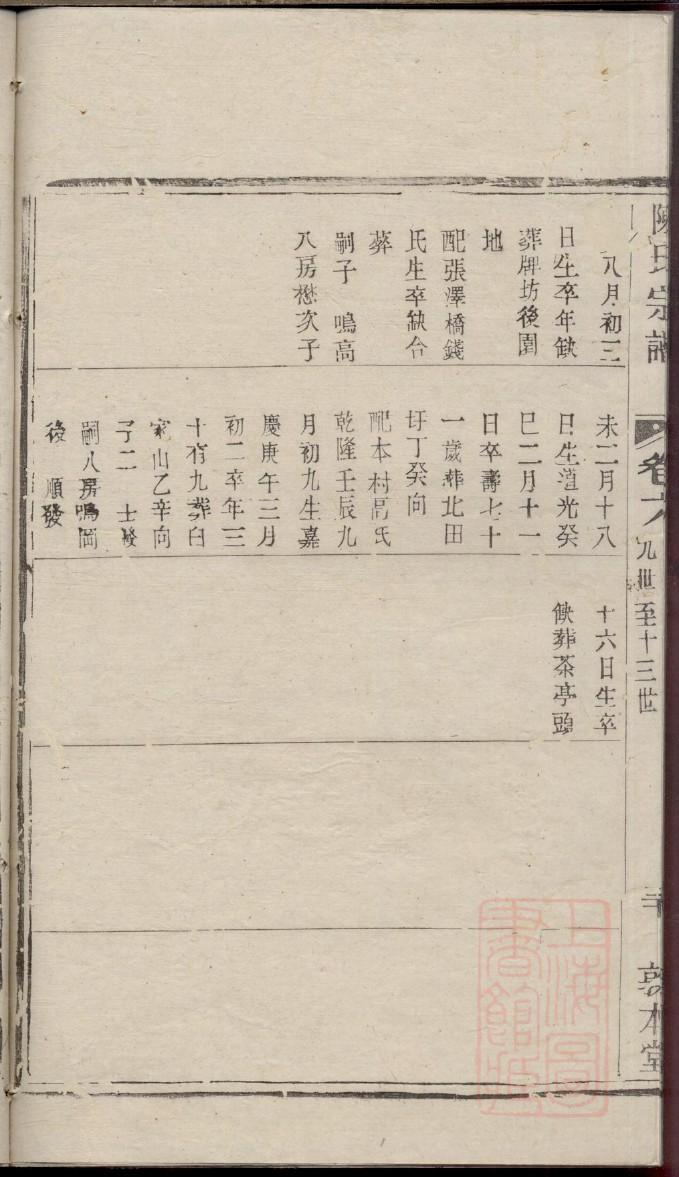 陳氏宗譜
卷六
九世至十三世
敦本堂
八月初三
日生卒年缺
葬牌坊後園
地
配張澤橋錢
氏生卒缺合
葬
嗣子　鳴高
八房懋次子
未二月十八
日生道光癸
巳二月十一
日卒壽七十
一歲葬北田
圩丁癸向
配本村周氏
乾隆壬辰九
月初九生嘉
慶庚午三月
初二卒年三
十有九葬白
家山乙辛向
子二　士發
嗣八房鳴岡
後　順發
十六日生卒
缺葬茶亭頭
上海圖
書館藏